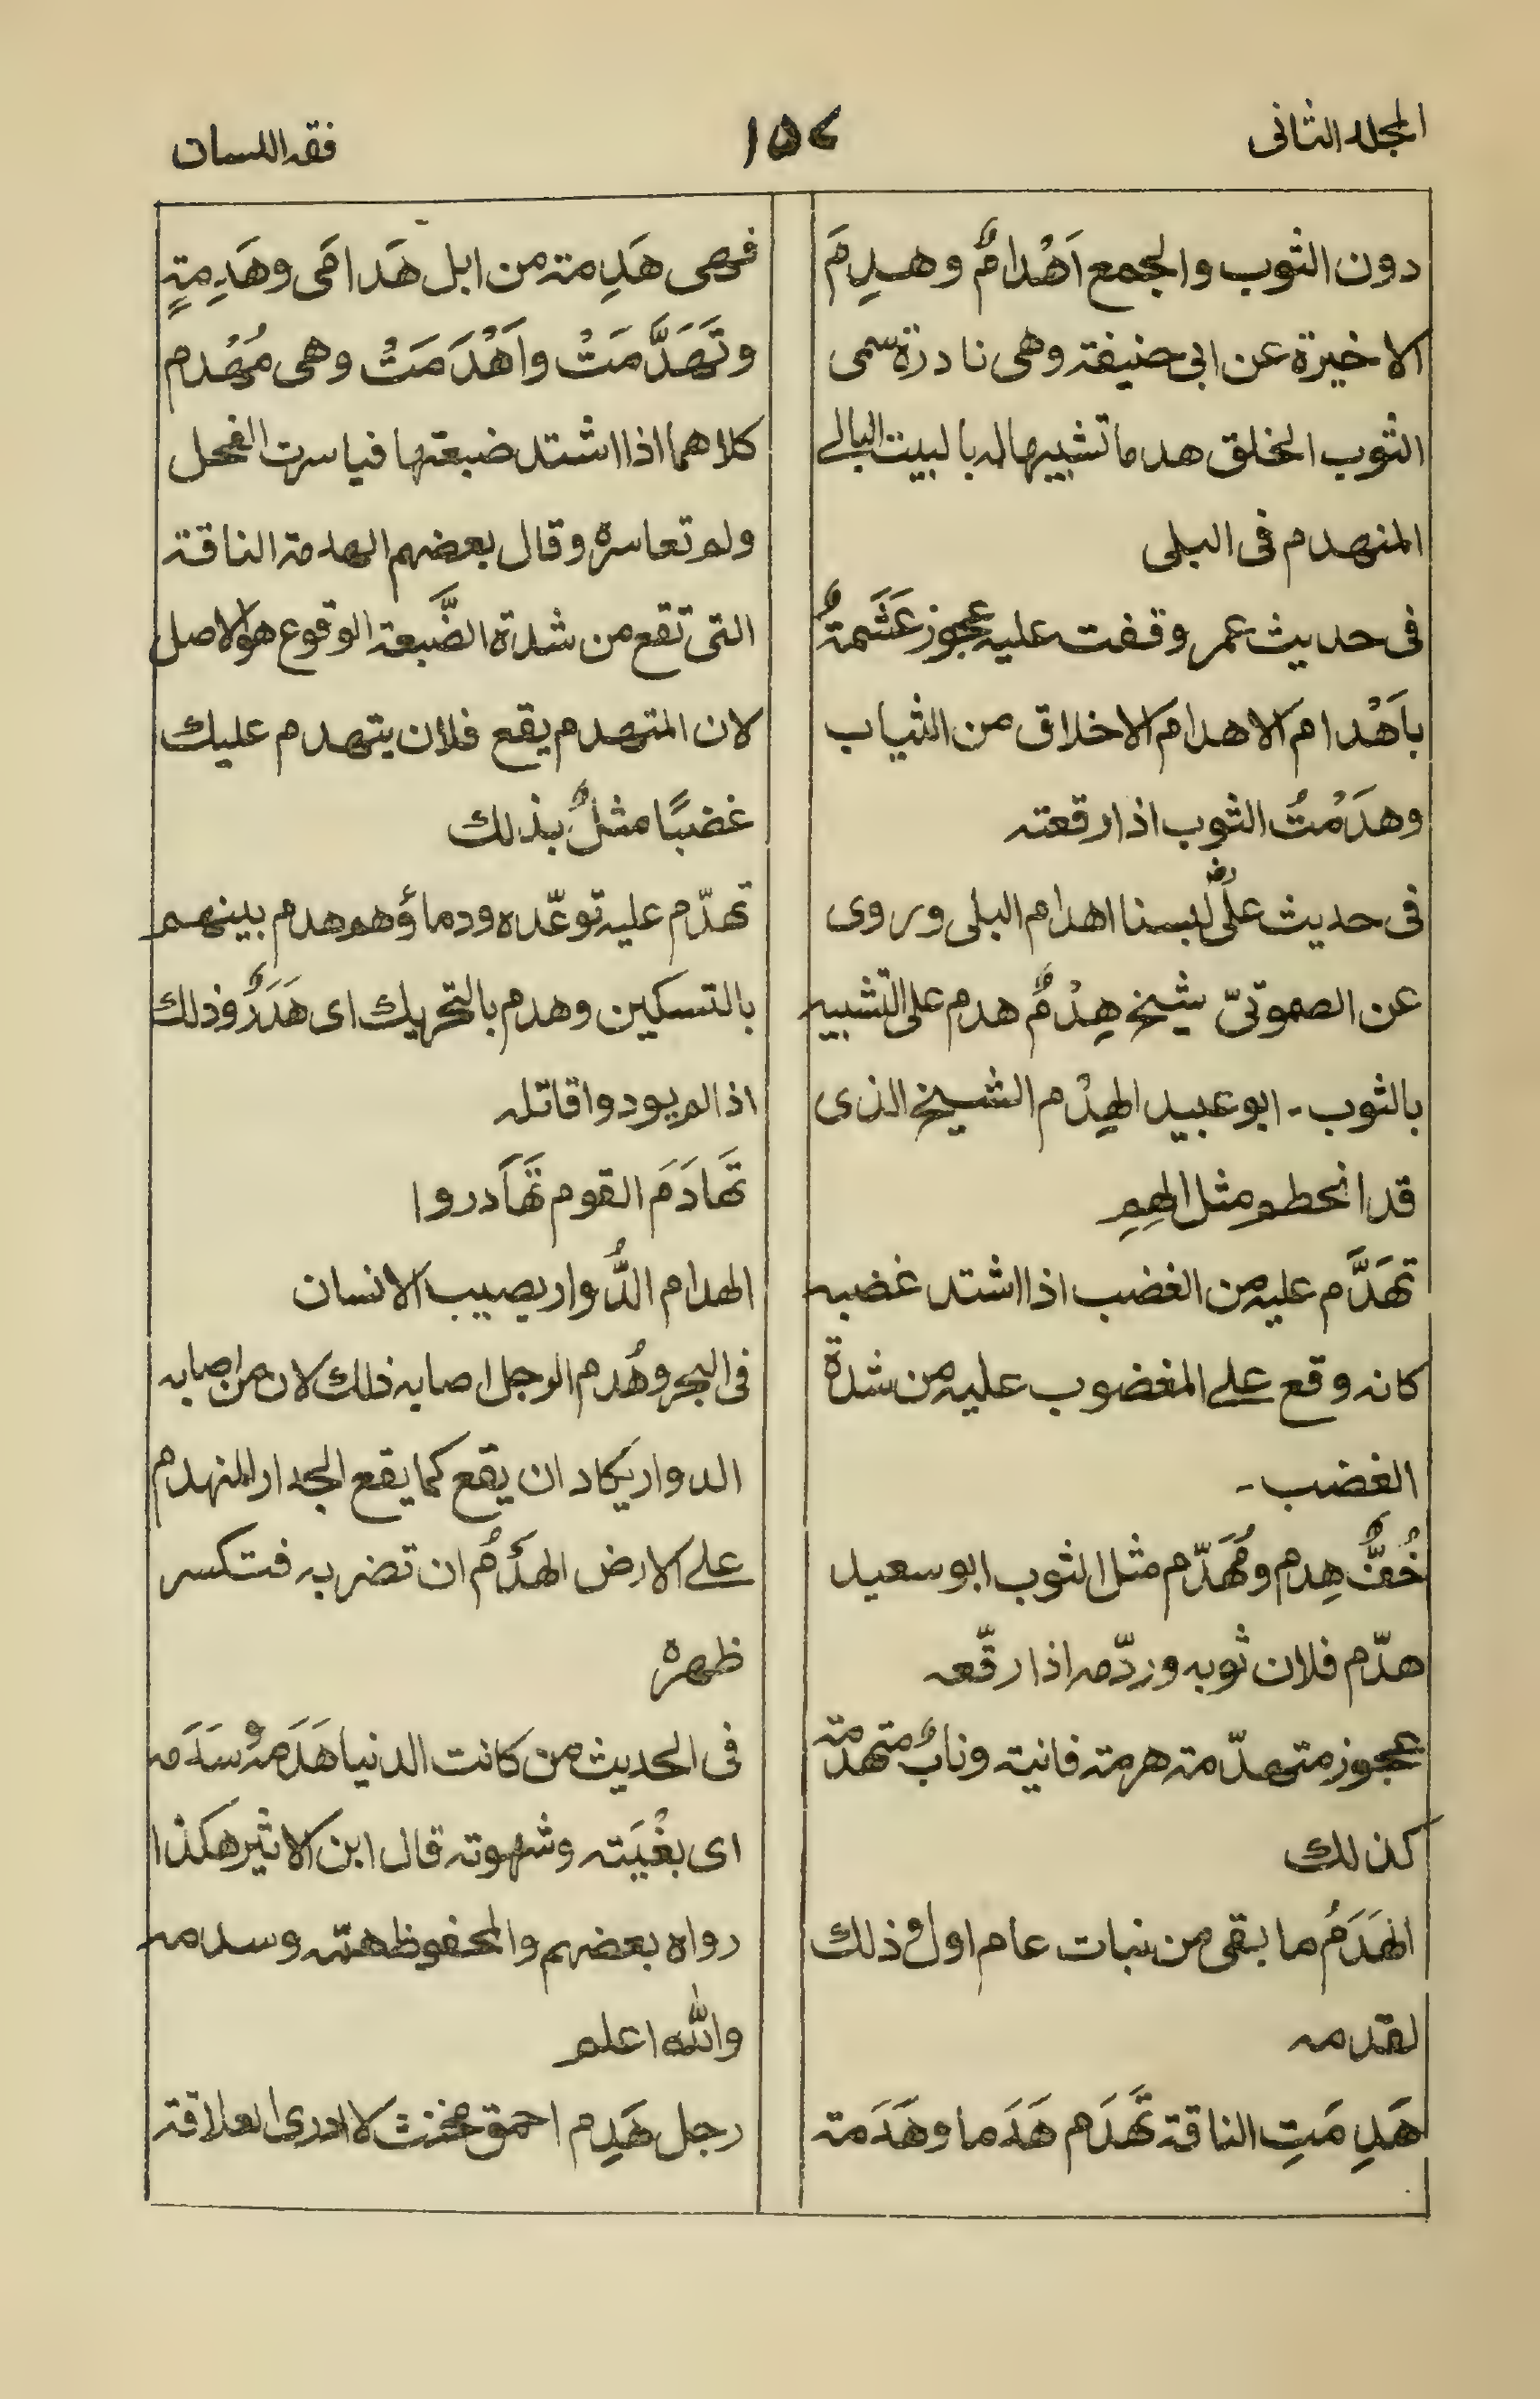 المجلد الثانی
١٥٧
فقہ اللسان
دون الثوب والجمع اَهْدامٌ وهِدِمَ
الاخيرة عن ابى حنيفة وهى نادرة سمى
الثوب الخلق هدما تشبيها له بالبيت البالے
المنهدم فى البلى
فى حديث عمر وقفت عليه عجوز عَشَمةٌ
باَهْدام الاهدام الاخلاق من الثياب
وهَدَمْتُ الثوب اذا رقعته
فى حديث علىؓ لَبسنا اهدام البلى وروى
عن الصموتىّ شيخ هِدْمٌ هدم على التشبيه
بالثوب - ابو عبيد الهِدْم الشيخ الذى
قد انحطم مثل الهِمِ
تَهَدَّم عليه من الغضب اذا اشتد غضبه
كانه وقع علے المغضوب عليه من شدة
الغضب -
خُفٌّ هِدم ومُهَدّم مثل الثوب ابو سعيد
هدّم فلان ثوبه وردّمه اذا رقّعه
عجوز متهدّمة هرمة فانية ونابٌ متهدّمة
كذلك
الهَدَمُ ما بقى من نبات عام اول وذلك
لقدمه
هَدِمَتِ الناقة تَهدَم هَدَما وهَدَمة
فهى هَدِمة من ابل هَدامَى وهَدِمةٍ
وتَهَدَّمَتْ واَهْدَمَتْ وهى مُهْدم
كلاهما اذا اشتد ضبعتها فياسرت الفحل
ولم تعاسره وقال بعضهم الهدمة الناقة
التى تقع من شدة الضَّبعة الوقوع هو الاصل
لان المتهدم يقع فلان يتهدم عليك
غضبًا مثلٌ بذلك
تهدّم عليه توعّده ودماؤهم هدم بينهم
بالتسكين وهدم بالتحريك اى هَدَرٌ وذلك
اذا لم يودوا قاتله
تَهادَمَ القوم تَهَادروا
الهدام الدُّوار يصيب الانسان
فى البحر وهُدم الرجل اصابه ذلك لان من اصابه
الدوار يكاد ان يقع كما يقع الجدار المنهدم
علے الارض الهدْمُ ان تضربه فتكسر
ظهره
فى الحديث من كانت الدنيا هَدَمهُ وسَدَمه
اى بغْيَته وشهوته قال ابن الاثير هكذا
رواه بعضهم والمحفوظ همّه وسدمه
والله اعلم
رجل هَدِم احمق مخنث لا ادرى العلاقة